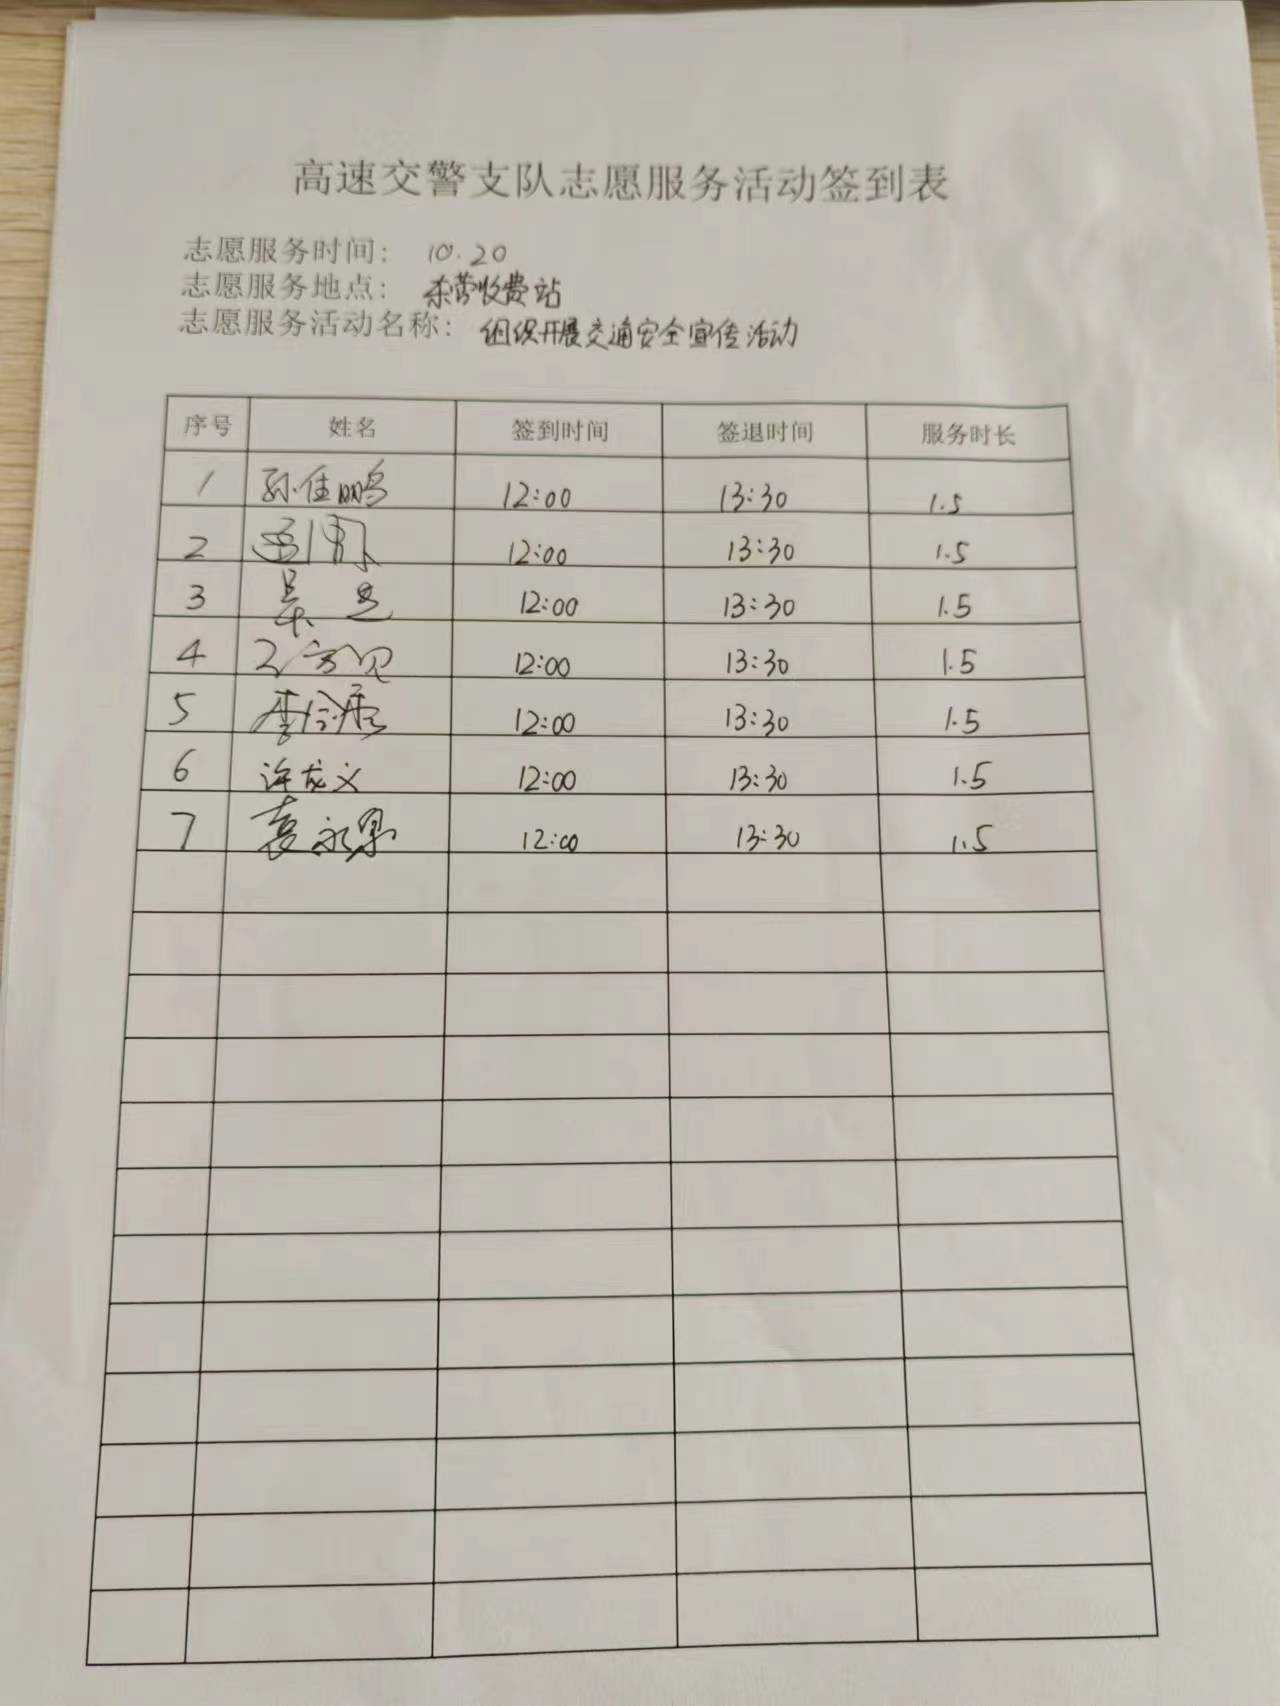 高速交警支队志愿服务活动签到表
志愿服务时间： 10.20
志愿服务地点： 收费站
志愿服务活动名称： 组织开展交通安全宣传活动
序号 姓名 签到时间 签退时间 服务时长
1 孙佳鹏 12:00 13:30 1.5
2 12:00 13:30 1.5
3 12:00 13:30 1.5
4 12:00 13:30 1.5
5 12:00 13:30 1.5
6 许成义 12:00 13:30 1.5
7 袁永 12:00 13:30 1.5